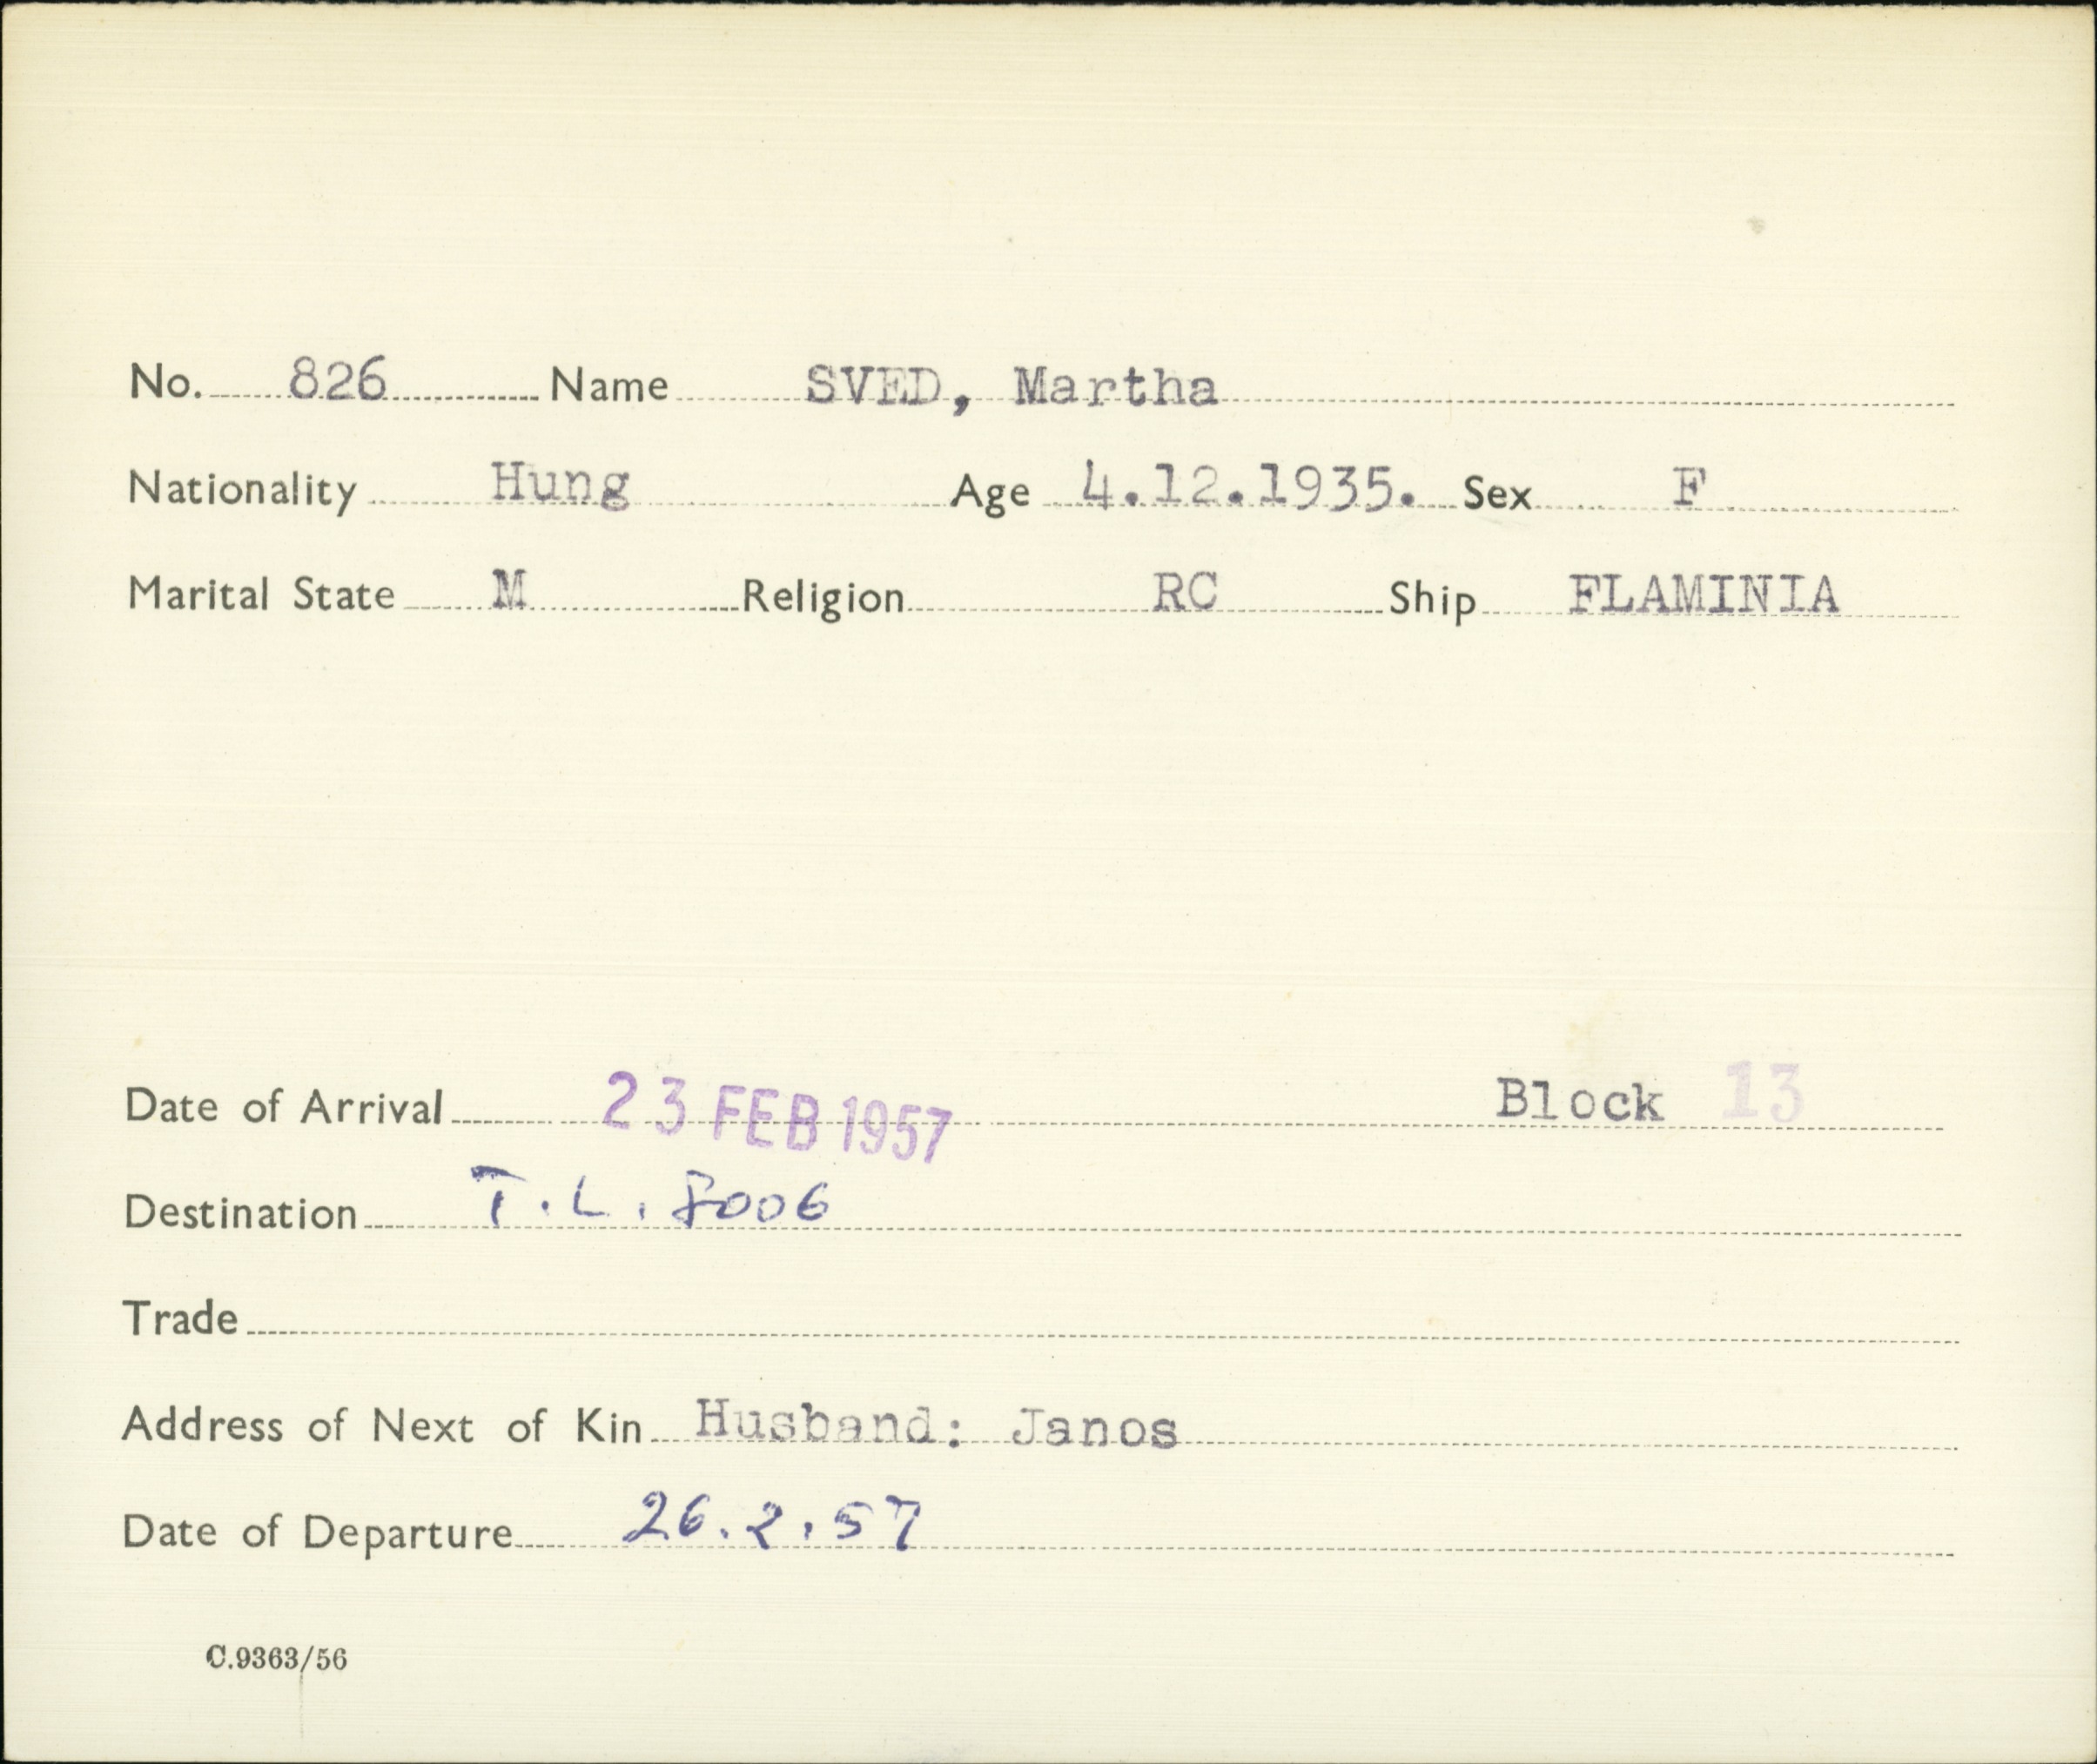 No. 826 Name SVED, Martha
Nationality Hung Age 4.12.1935. Sex F
Marital State M Religion RC Ship FLAMINIA
Date of Arrival 23 FEB 1957 Block 13
Destination T.L. 8006
Trade
Address of Next of Kin Husband: Janos
Date of Departure 26.2.57
C.9363/56